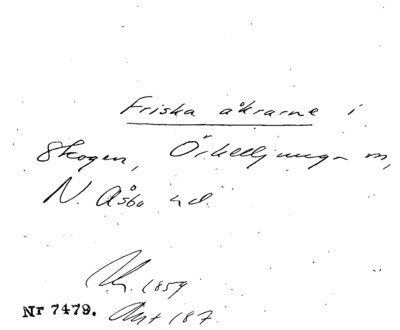 Friska åkrarne i
Skogen, Örkelljunga sn,
N. Åsbo hd.
1859
Nr 7479. Avst 187